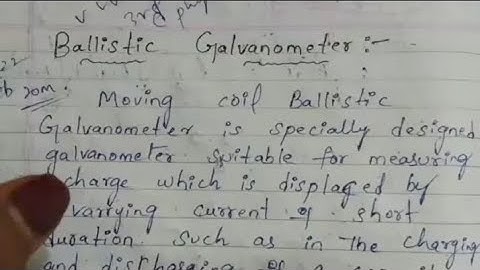 3rd phy
Ballistic Galvanometer :-
22
Moving coil Ballistic
Galvanometer is specially designed
galvanometer suitable for measuring
charge which is displaced by
varrying current of short
duration such as in the charging
and discharging of a